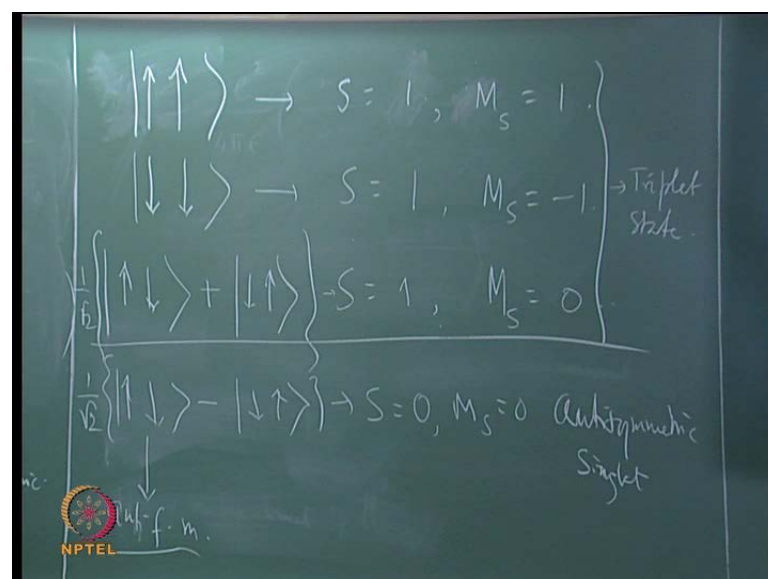 |↑↑⟩ → S = 1, M_S = 1.
|↓↓⟩ → S = 1, M_S = -1. → Triplet State.
1/√2 {|↑↓⟩ + |↓↑⟩} → S = 1, M_S = 0
1/√2 {|↑↓⟩ - |↓↑⟩} → S=0, M_S=0 Antisymmetric Singlet
f. m.
NPTEL